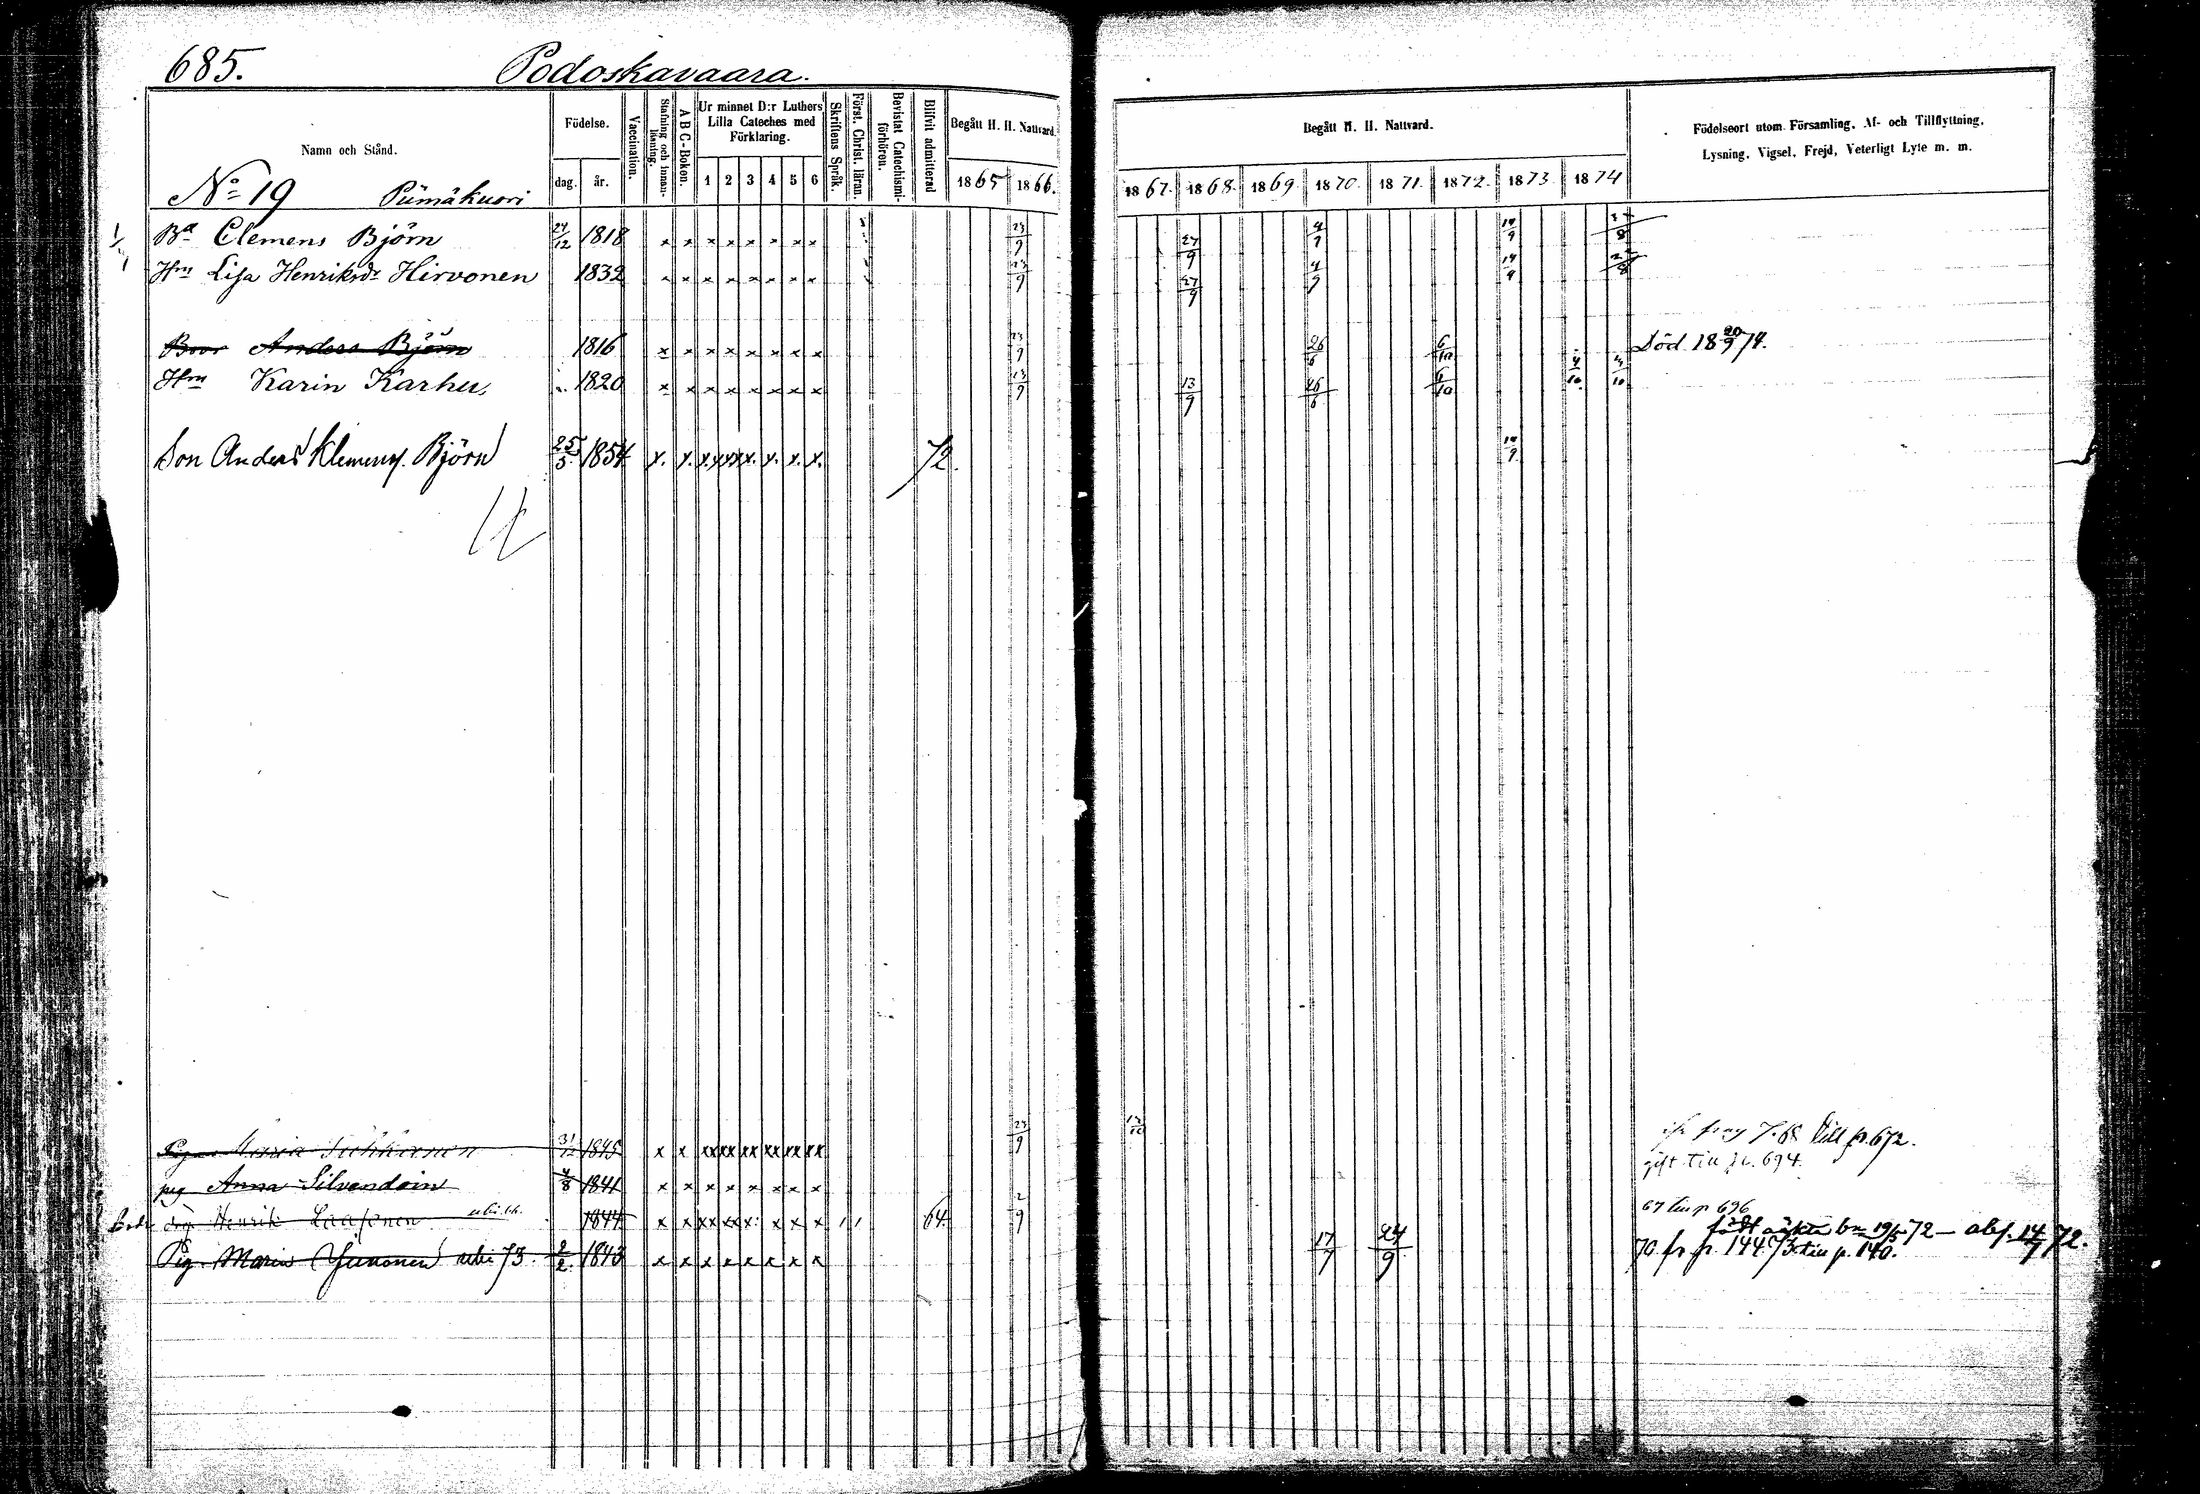 685. Podoskavaara.
Namn och Stånd. Födelse. dag. år. Vaccination. Stafning och innanläsning. A B C-Boken. Ur minnet D:r Luthers Lilla Cateches med Förklaring. 1 2 3 4 5 6 Skriftens Språk. Först. Christ. läran. Bevistat Catechismiförhören. Blifvit admitterad Begått H. H. Nattvard. 1865 1866.
Begått H. H. Nattvard. 1867. 1868. 1869. 1870. 1871. 1872. 1873. 1874 Födelseort utom Församling, Af- och Tillflyttning, Lysning, Vigsel, Frejd, Veterligt Lyte m. m.
No 19 Pümäkuori
Bd Clemens Björn 24/12 1818 x x x x x x x x 23/9 27/9 4/9 14/9 8
Hru Lisa Henriksdr Hirvonen 1832 x x x x x x x x 23/9 27/9 4/9 14/9 8
Bror Anders Björn 1816 x x x x x x x x 23/9 26/6 6/10 Död 18 20/9 74.
Hru Karin Karhu 1820 x x x x x x x x 23/9 13/9 26/6 6/10 4/10
Son Anders Klemens. Björn 25/5 1854 x. x. x. x x x x. x. x. x. 72. 14/9
Maria 31/12 1845 x x xx xx xx xx xx xx 23/9 13/10 68 till p. 672.
gift till p. 694.
pig Anna Silvendoin 4/8 1841 x x x x x x x x
Henrik Laasonen 1844 x x xx x x x x 64. 2/9 67 till p 696
födt oäkta bn 19/5 72 — abs. 14/7 72.
Pig. Maria Junonen ubi 73. 2/2 1843 x x x x x x x x 17/7 24/9 70 fr p. 144. 73 till p. 140.